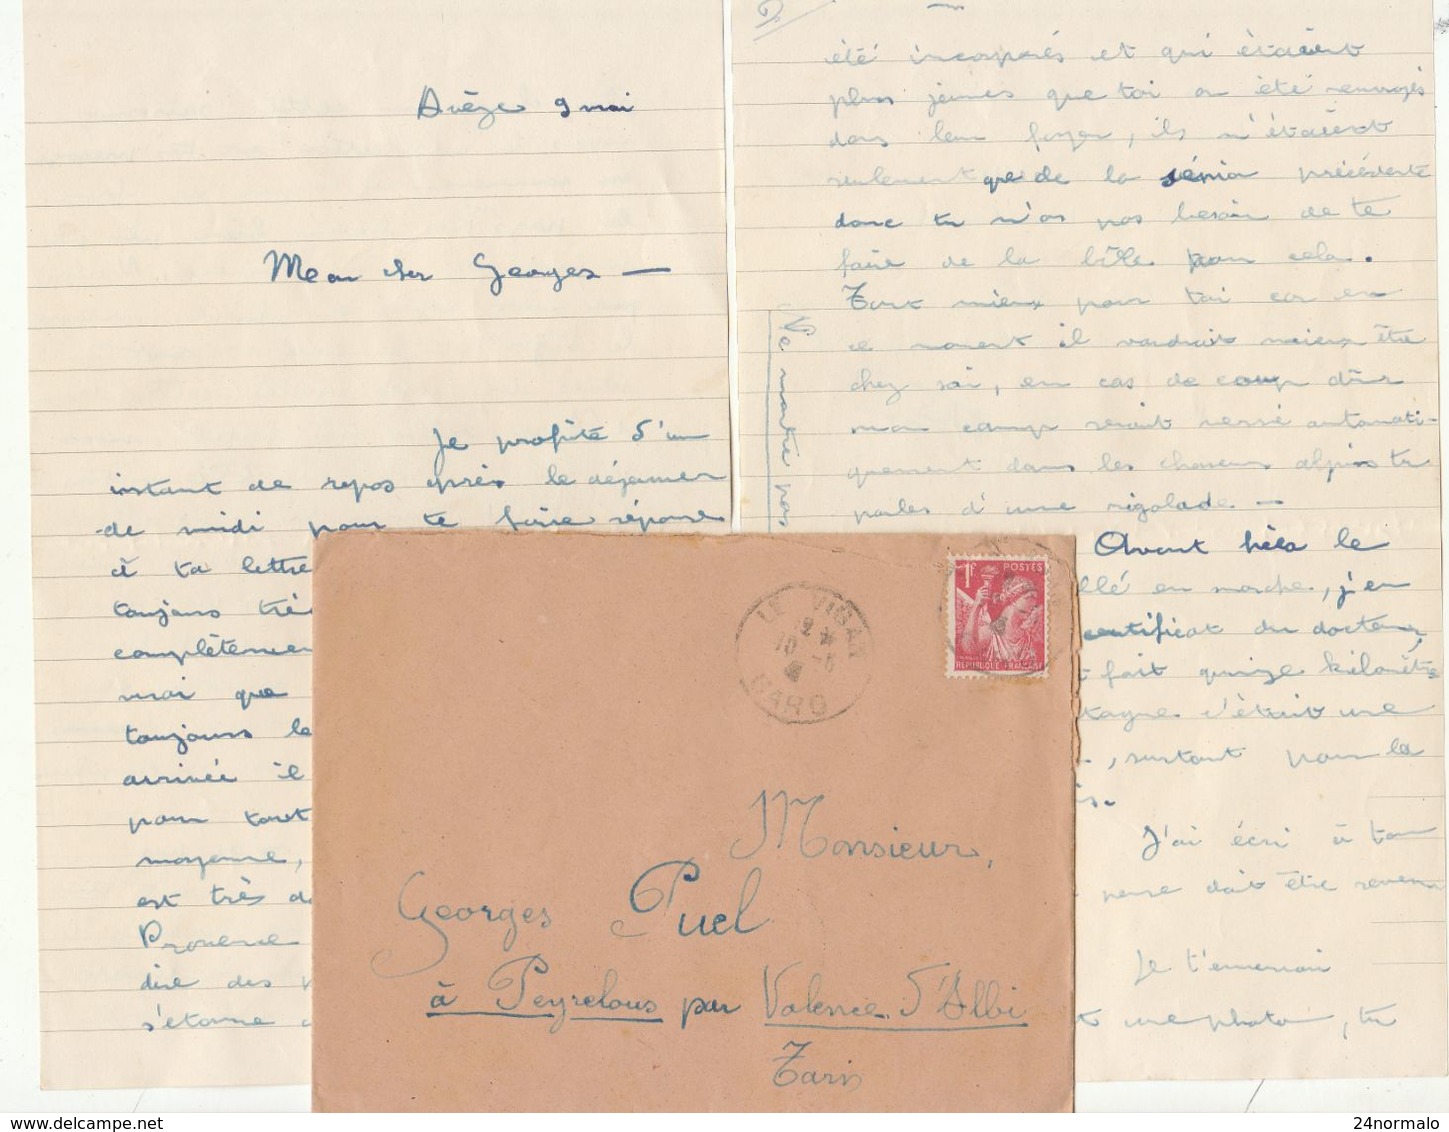 Arèze 9 mai
Mon cher Georges —
Je profite d'un
instant de repos après le déjeuner
de midi pour te faire réponse
à ta lettre
toujours très
complètement
moi que
toujours le
arrivée il
pour tout
moyenne,
est très d
Provence
dire des
s'étonne
été incorporés et qui étaient
plus jeunes que toi on été renvoyés
dans leur foyer, ils n'étaient
seulement que de la série précédente
donc tu n'as pas besoin de te
faire de la bîle pour cela.
Tant mieux pour toi car en
ce moment il vaudrait mieux être
chez soi, en cas de coup dûr
mon camp serait versé automati-
quement dans les chasseurs alpins tu
parles d'une rigolade —
Avant hièr le
llé en marche, j'en
certificat du docteur,
t fait quinze kilomèt
tagnes c'était une
, surtout pour la
s.
J'ai écri à ton
pense doit être revenu
Je t'enverrai
une photo, tu
Ne montre pas
LE VIGAN
12 *
10 -5
GARD
1F POSTES
REPUBLIQUE FRANÇAISE
Monsieur,
Georges Puel
à Peyrelous par Valence d'Albi
Tarn
www.delcampe.net
24normalo